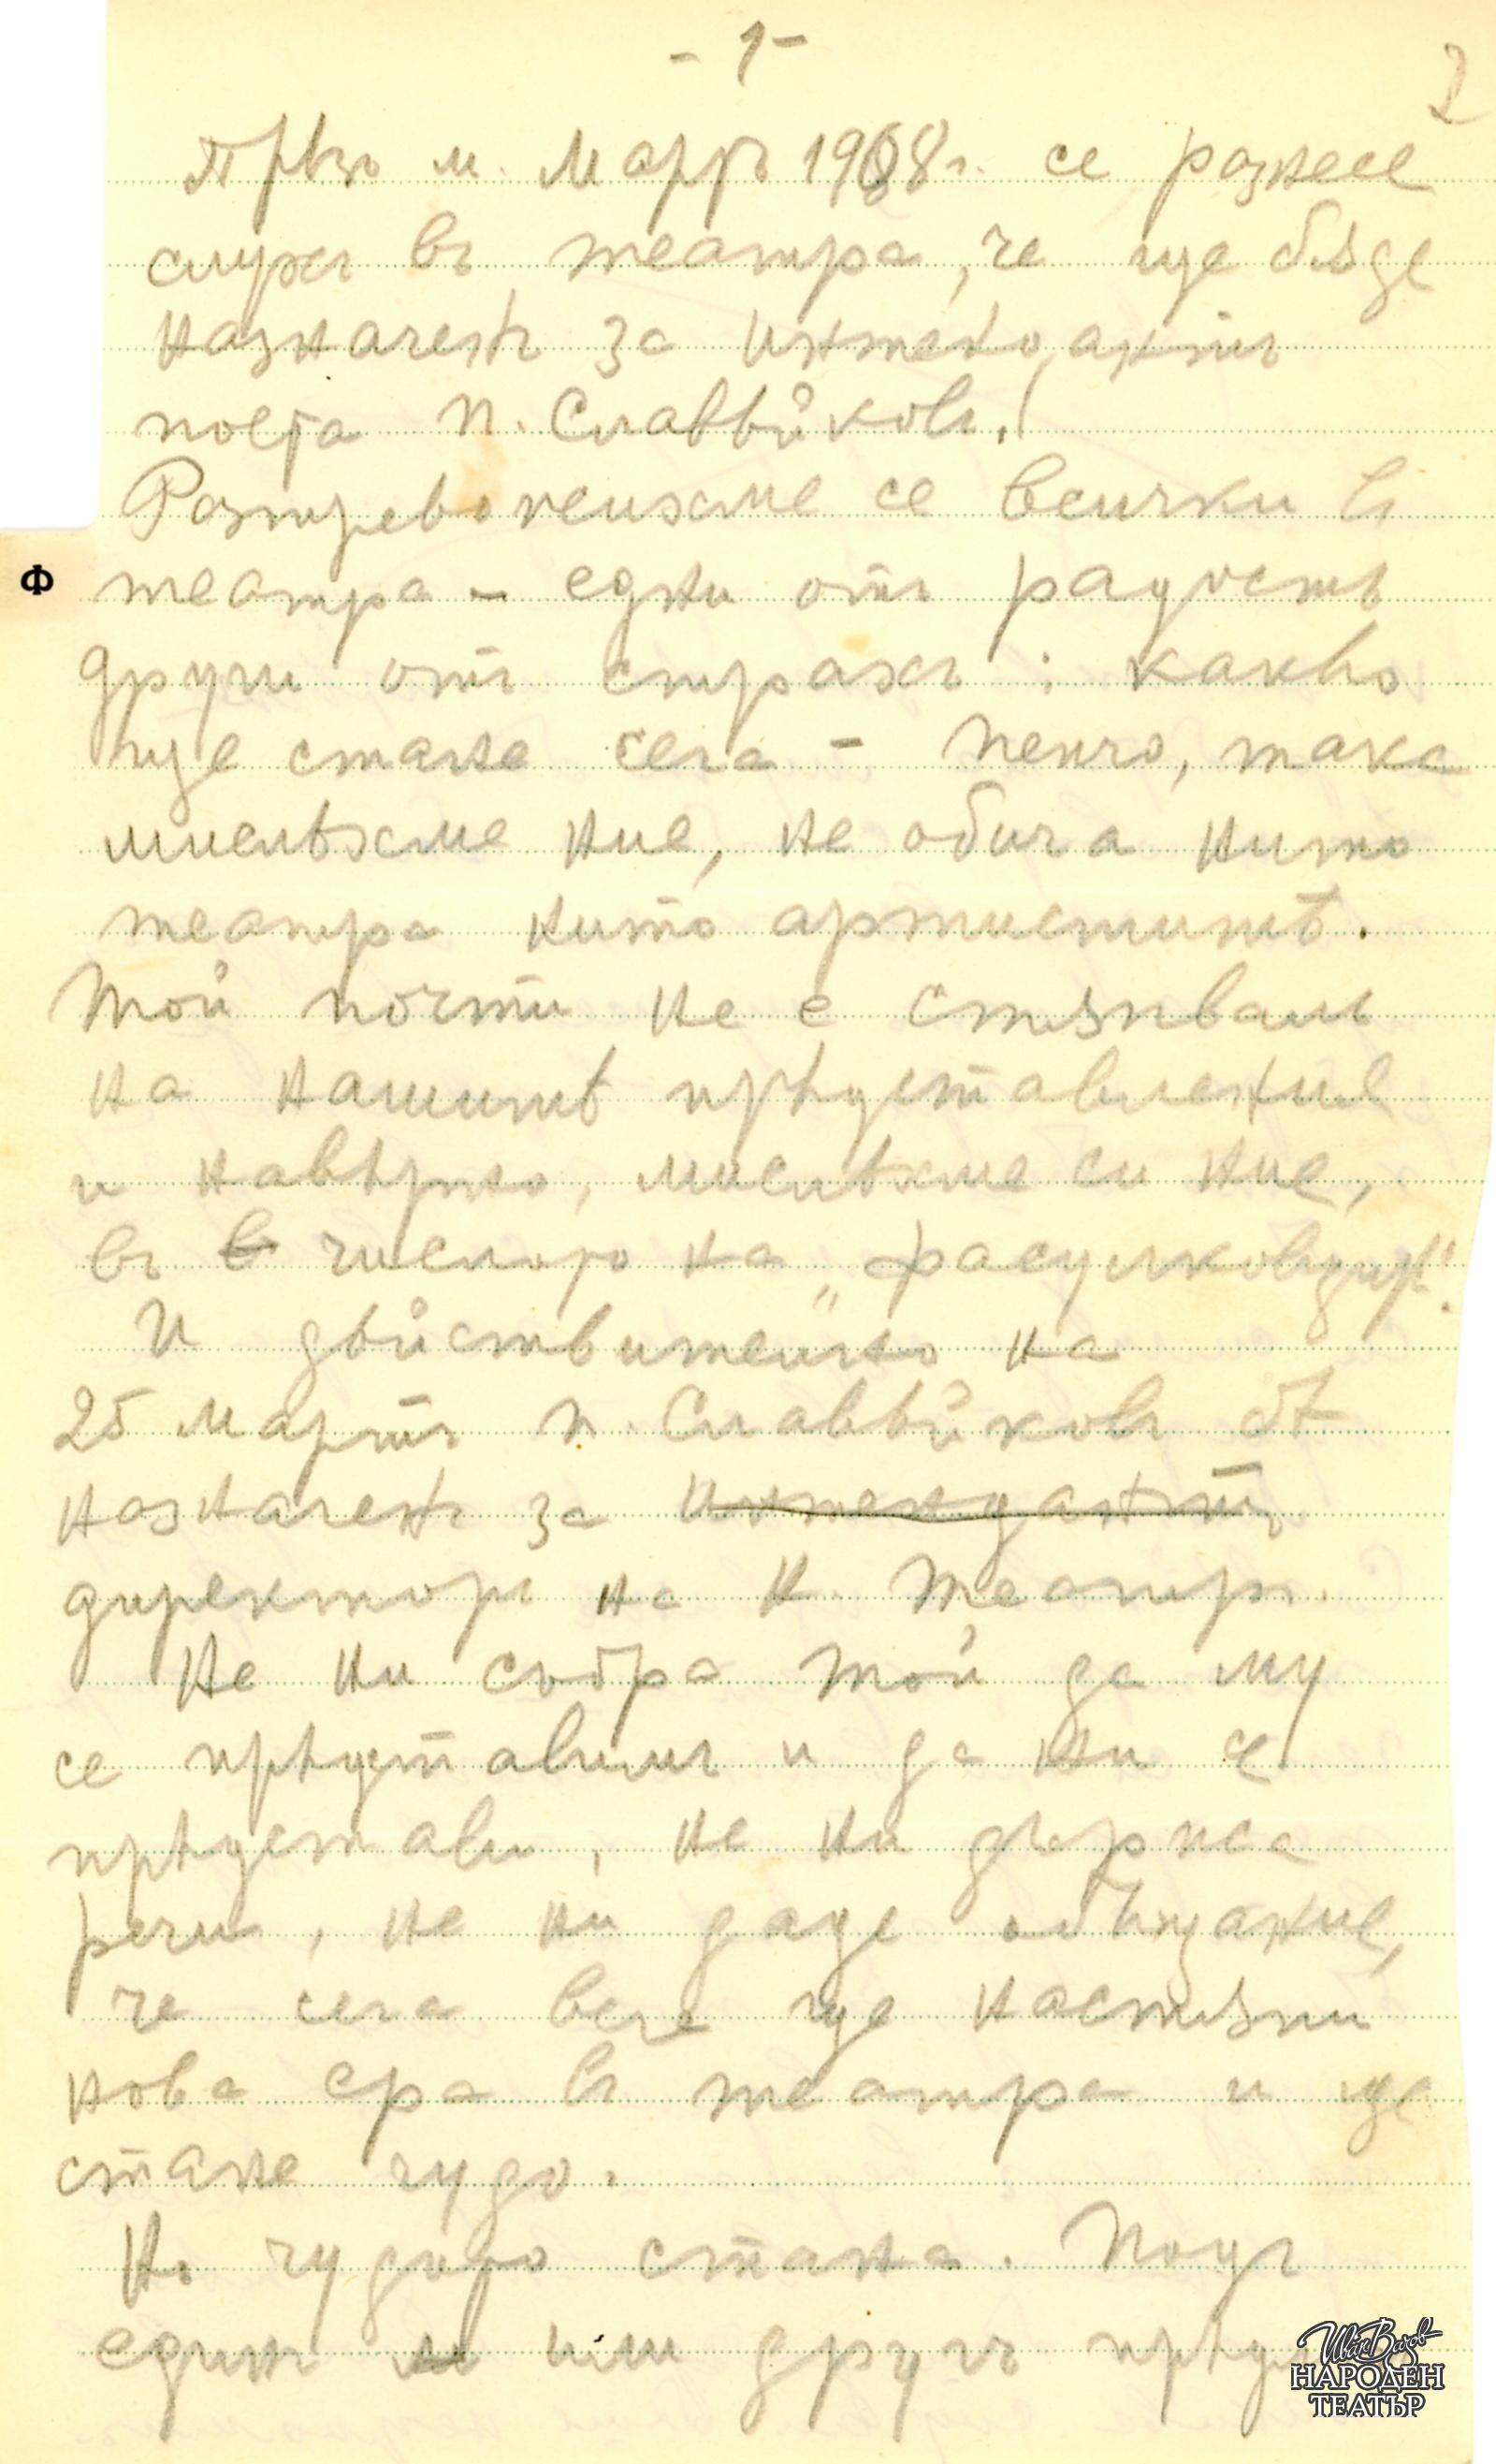 - 1 -
2
Прѣзъ м. Мартъ 1908 г. се разнесе
слухъ въ театра, че ще бѫде
назначенъ за интендантъ
поета П. Славѣйковъ.
Разтревожихме се всички въ
театра - едни отъ радость
други отъ страхъ: какво
ще стане сега - Пенчо, така
мислѣхме ние, не обича нито
театра нито артиститѣ.
Той почти не е стѫпвалъ
на нашитѣ прѣдставления
и навѣрно, мислѣхме си ние,
въ числото на
И дѣйствително на
25 Мартъ П. Славѣйковъ бѣ
назначенъ за интендантъ
директоръ на Н. Театръ.
Не ни събра той да му
се прѣдставимъ и да ни се
прѣдстави, не ни държа
речи, не ни даде обѣщание,
че сега вече ще настѫпи
нова ера въ театра и ще
стане чудо.
Но чудото стана. Подъ
единъ или другъ
Ф
Иван Вазов
НАРОДЕН
ТЕАТЪР